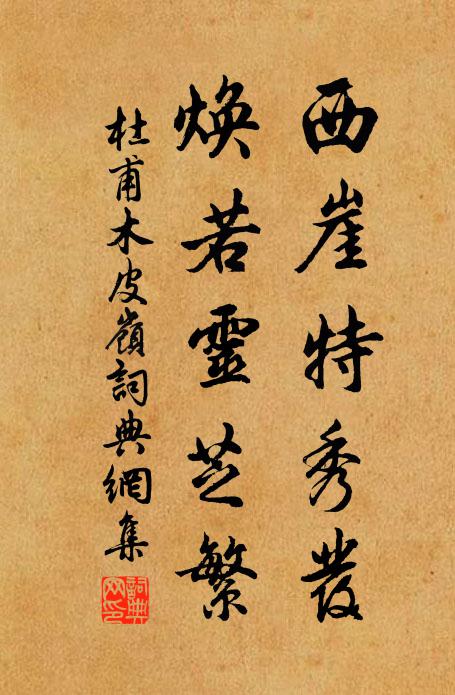 西崖特秀發
煥若靈芝繁
杜甫木皮嶺詞典網集
詞典網印